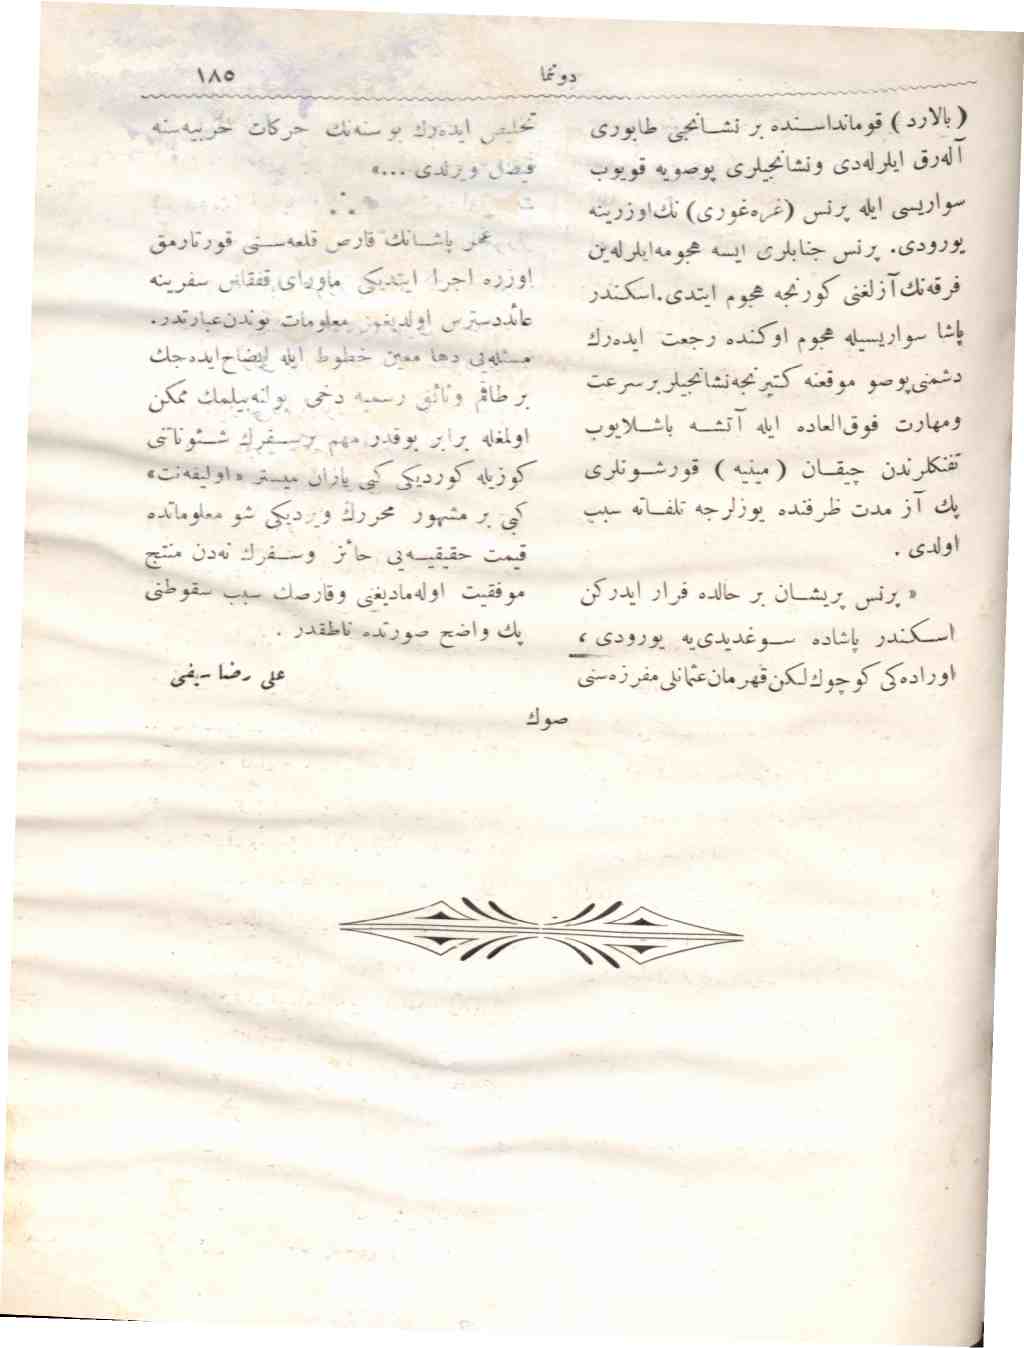 دوننما
١٨٥
( بالارد ) قومانداسنده بر نشانجى طابورى
آلەرق ايلرلەدى ونشانجيلرى پوصويه قويوب
سواريسى ايله پرنس (غرەغورى) نك اوزرينه
يورودى. پرنس جنابلرى ايسه هجومه ايلرلەين
فرقەنك آزلغنى كورنجه هجوم ايتدى. اسكندر
پاشا سواريسيله هجوم اوكنده رجعت ايدەرك
دشمنى پوصو موقعنه كتيرنجه نشانجيلر بر سرعت
ومهارت فوق‌العاده ايله آتشه باشلايوب
تفنكلرندن چيقان ( مينيه ) قورشونلرى
پك آز مدت ظرفنده يوزلرجه تلفاته سبب
اولدى .
« پرنس پريشان بر حالده فرار ايدركن
اسكندر پاشاده سوغديدى‌يه يورودى ،
اورادەكى كوچوك لكن قهرمان عثمانلى مفرزەسنى
تخليص ايدەرك بو سنەنك حركات حربيه‌سنه
فيصل ويرلدى ...»
عمر پاشانك قارص قلعەسنى قورتارمق
اوزره اجرا ايتديكى ماوراى قفقاس سفرينه
عائد دسترس اولديغمز معلومات بوندن عبارتدر.
مسئلەيى دها معين خطوط ايله ايضاح ايدەجك
بر طاقم وثائق رسميه دخى بولنه‌بيلمك ممكن
اولمغله برابر بوقدر مهم بر سفرك شئوناتنى
كوزيله كورديكى كبى يازان ميستر « اوليفەنت»
كبى بر مشهور محررك ويرديكى شو معلوماتده
قيمت حقيقيه‌يى حائز وسفرك نەدن منتج
موفقيت اوله‌ماديغنى وقارصك سبب سقوطنى
پك واضح صورتده ناطقدر .
على رضا سيفى
صوك